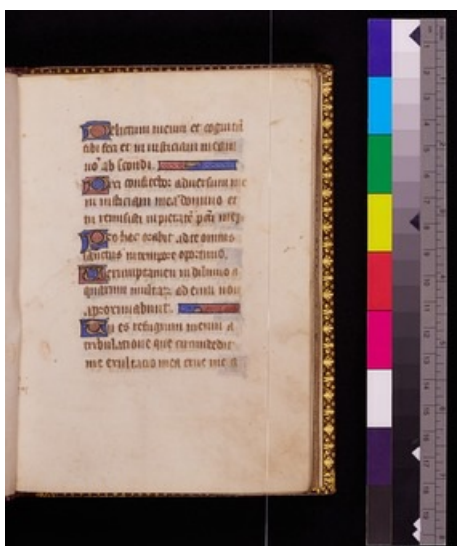 Delictum meum et cognitū
tibi feci et in iusticiam meam
nō ab scondi.
Dixi confitebor adversum me
in iusticiam meā domino et
tu remisisti impietatē pctī mei
Pro hac orabit ad te omnis
sanctus in tempore oportuno.
Verumptamen in diluvio a
quarum multarz ad eum non
aproximabunt.
Tu es refugium meum a
tribulatione que circundedit
me exultatio mea erue me a